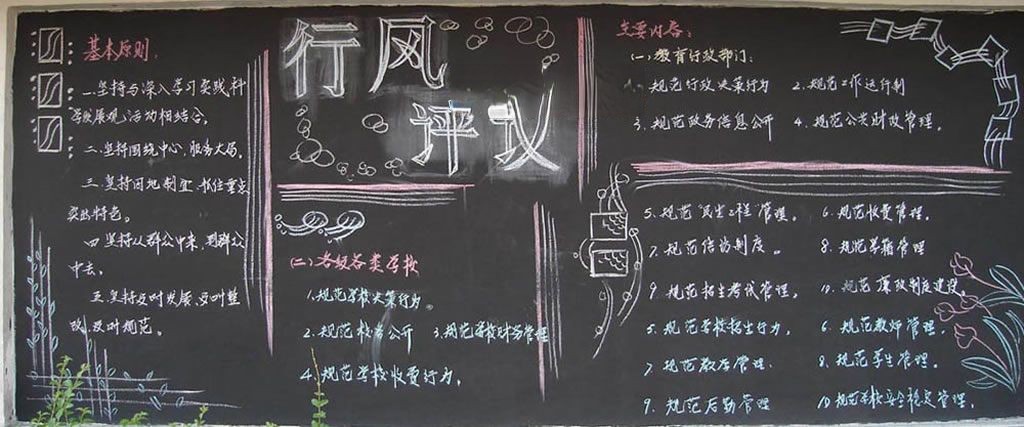 行风
评议
基本原则:
一.坚持与深入学习实践科
学发展观活动相结合。
二.坚持围绕中心,服务大局。
三.坚持因地制宜,抓住重点
突出特色。
四.坚持从群众中来,到群众
中去。
五.坚持及时发展,及时整
改,及时规范。
主要内容:
(一)教育行政部门:
1.规范行政决策行为
2.规范工作运行制
3.规范政务信息公开
4.规范公共财政管理。
5.规范民生工程管理。
6.规范收费管理。
7.规范信访制度。
8.规范学籍管理
9.规范招生考试管理。
10.规范廉政制度建设
(二)各级各类学校
1.规范学校决策行为。
2.规范校务公开
3.规范学校财务管理
4.规范学校收费行为。
5.规范学校招生行为。
6.规范教师管理。
7.规范教学管理.
8.规范学生管理.
9.规范后勤管理
10.规范学校安全稳定管理。